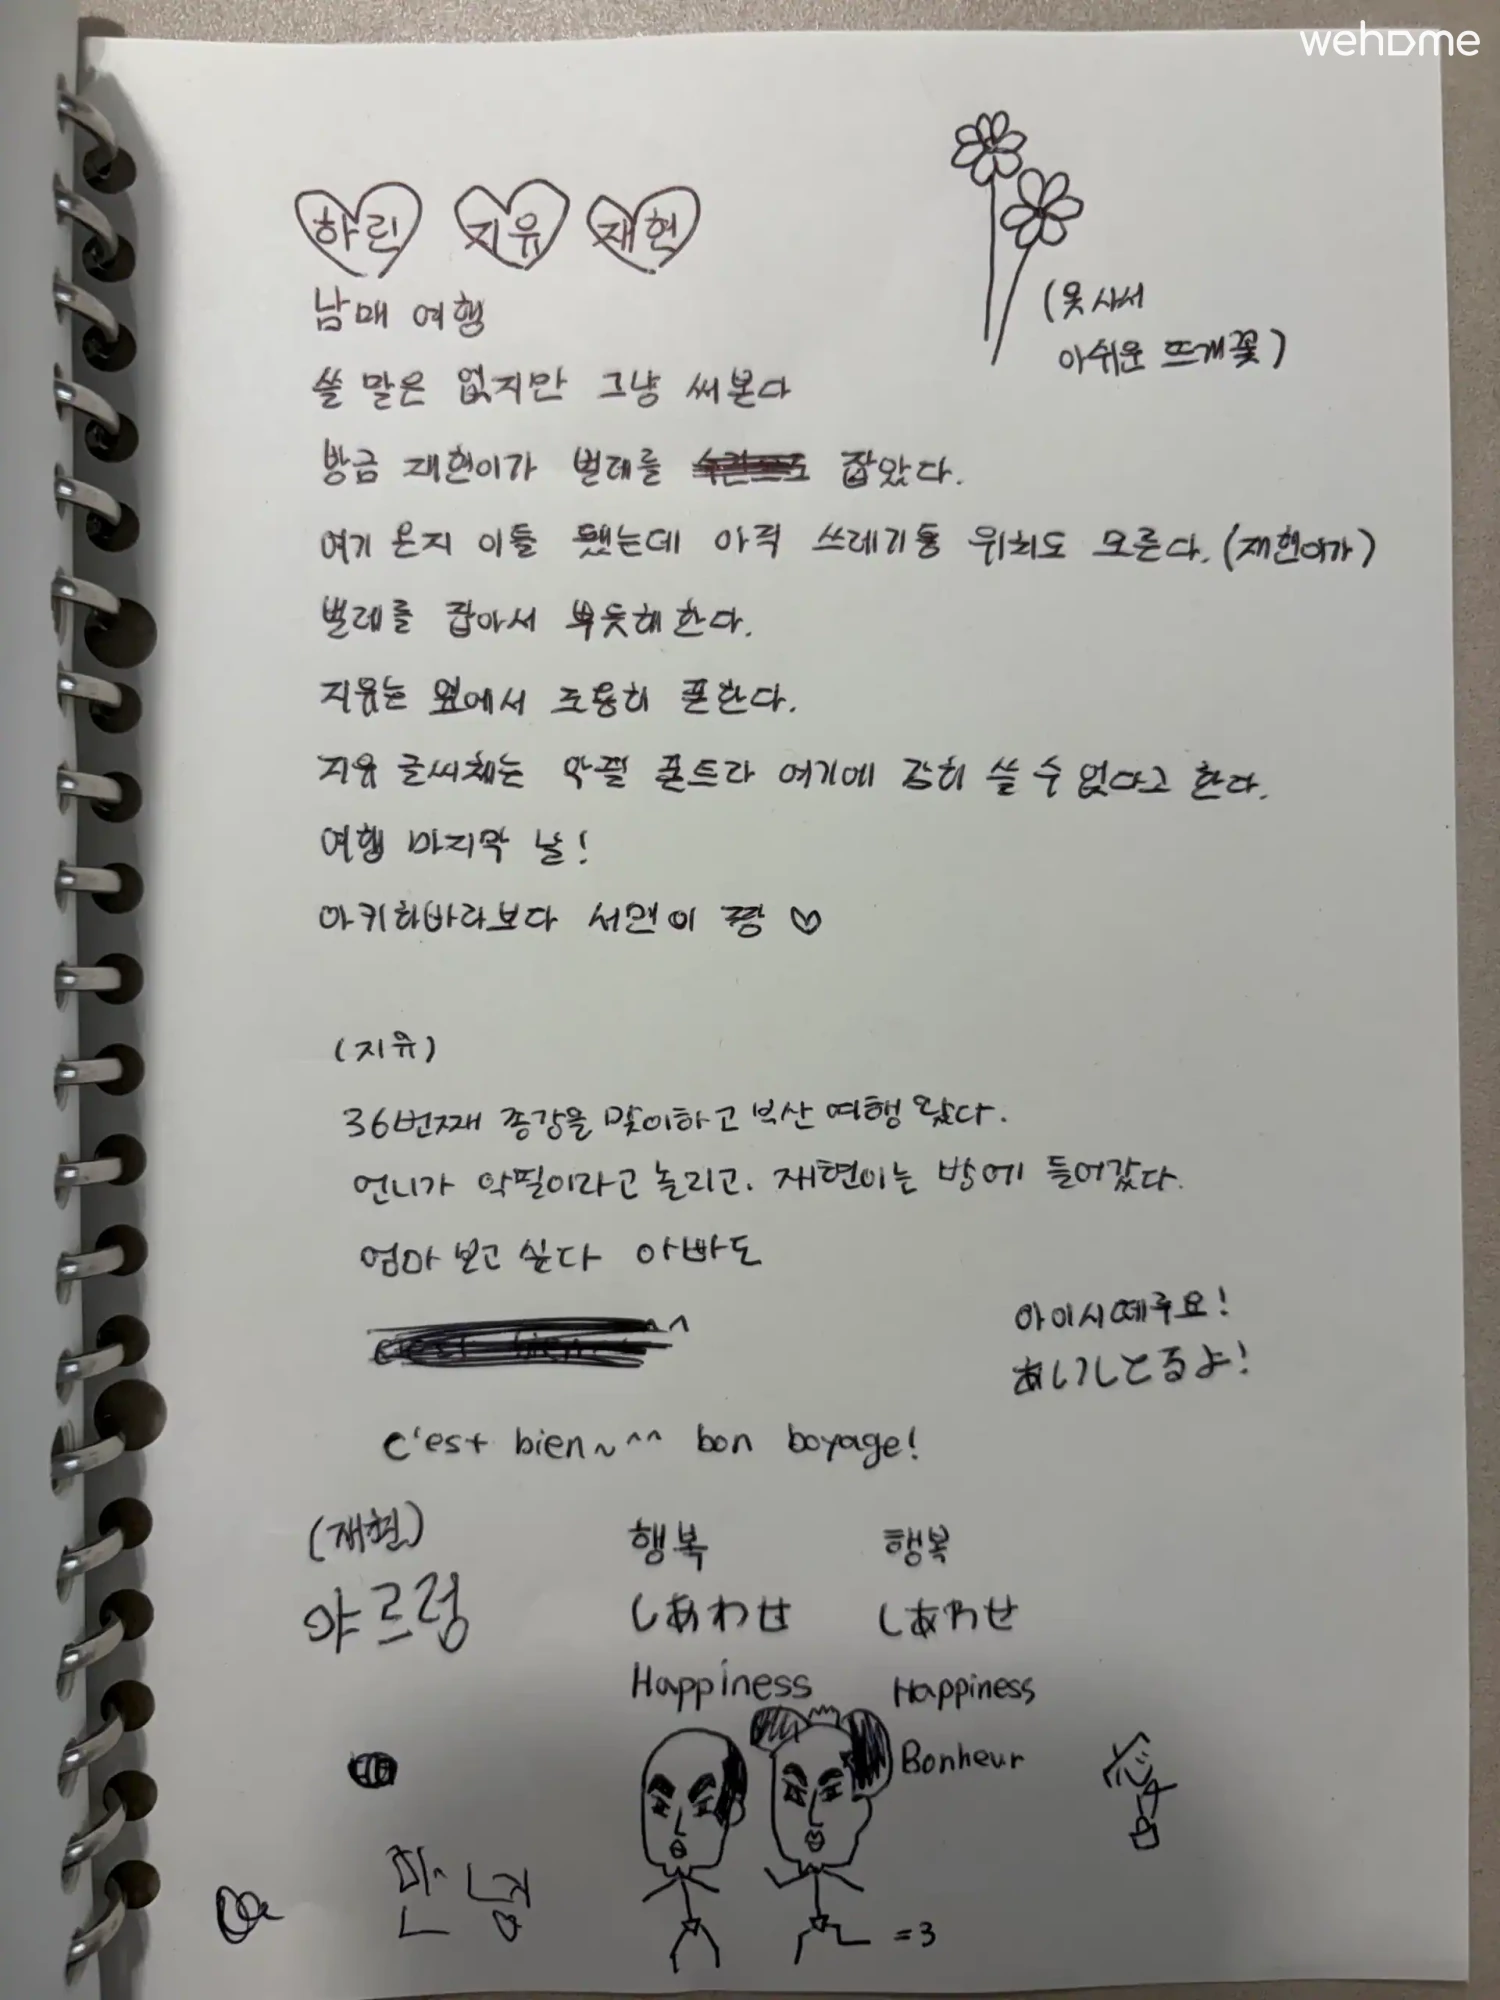 wehome
하린 지유 재현
(못사서
아쉬운 뜨개꽃)
남매 여행
쓸 말은 없지만 그냥 써본다
방금 재현이가 벌레를 잡았다.
여기 온지 이틀 됐는데 아직 쓰레기통 위치도 모른다. (재현이가)
벌레를 잡아서 뿌듯해 한다.
지유는 옆에서 조용히 폰한다.
지유 글씨체는 악필 폰트라 여기에 감히 쓸 수 없다고 한다.
여행 마지막 날!
아키하바라보다 서면이 짱 ♡
(지유)
36번째 종강을 맞이하고 부산 여행 왔다.
언니가 악필이라고 놀리고. 재현이는 방에 들어갔다.
엄마 보고 싶다 아빠도
아이시떼루요!
あいしてるよ!
c'est bien~^^ bon boyage!
(재현)
야르렁
행복 행복
しあわせ しあわせ
Happiness Happiness
Bonheur
=3